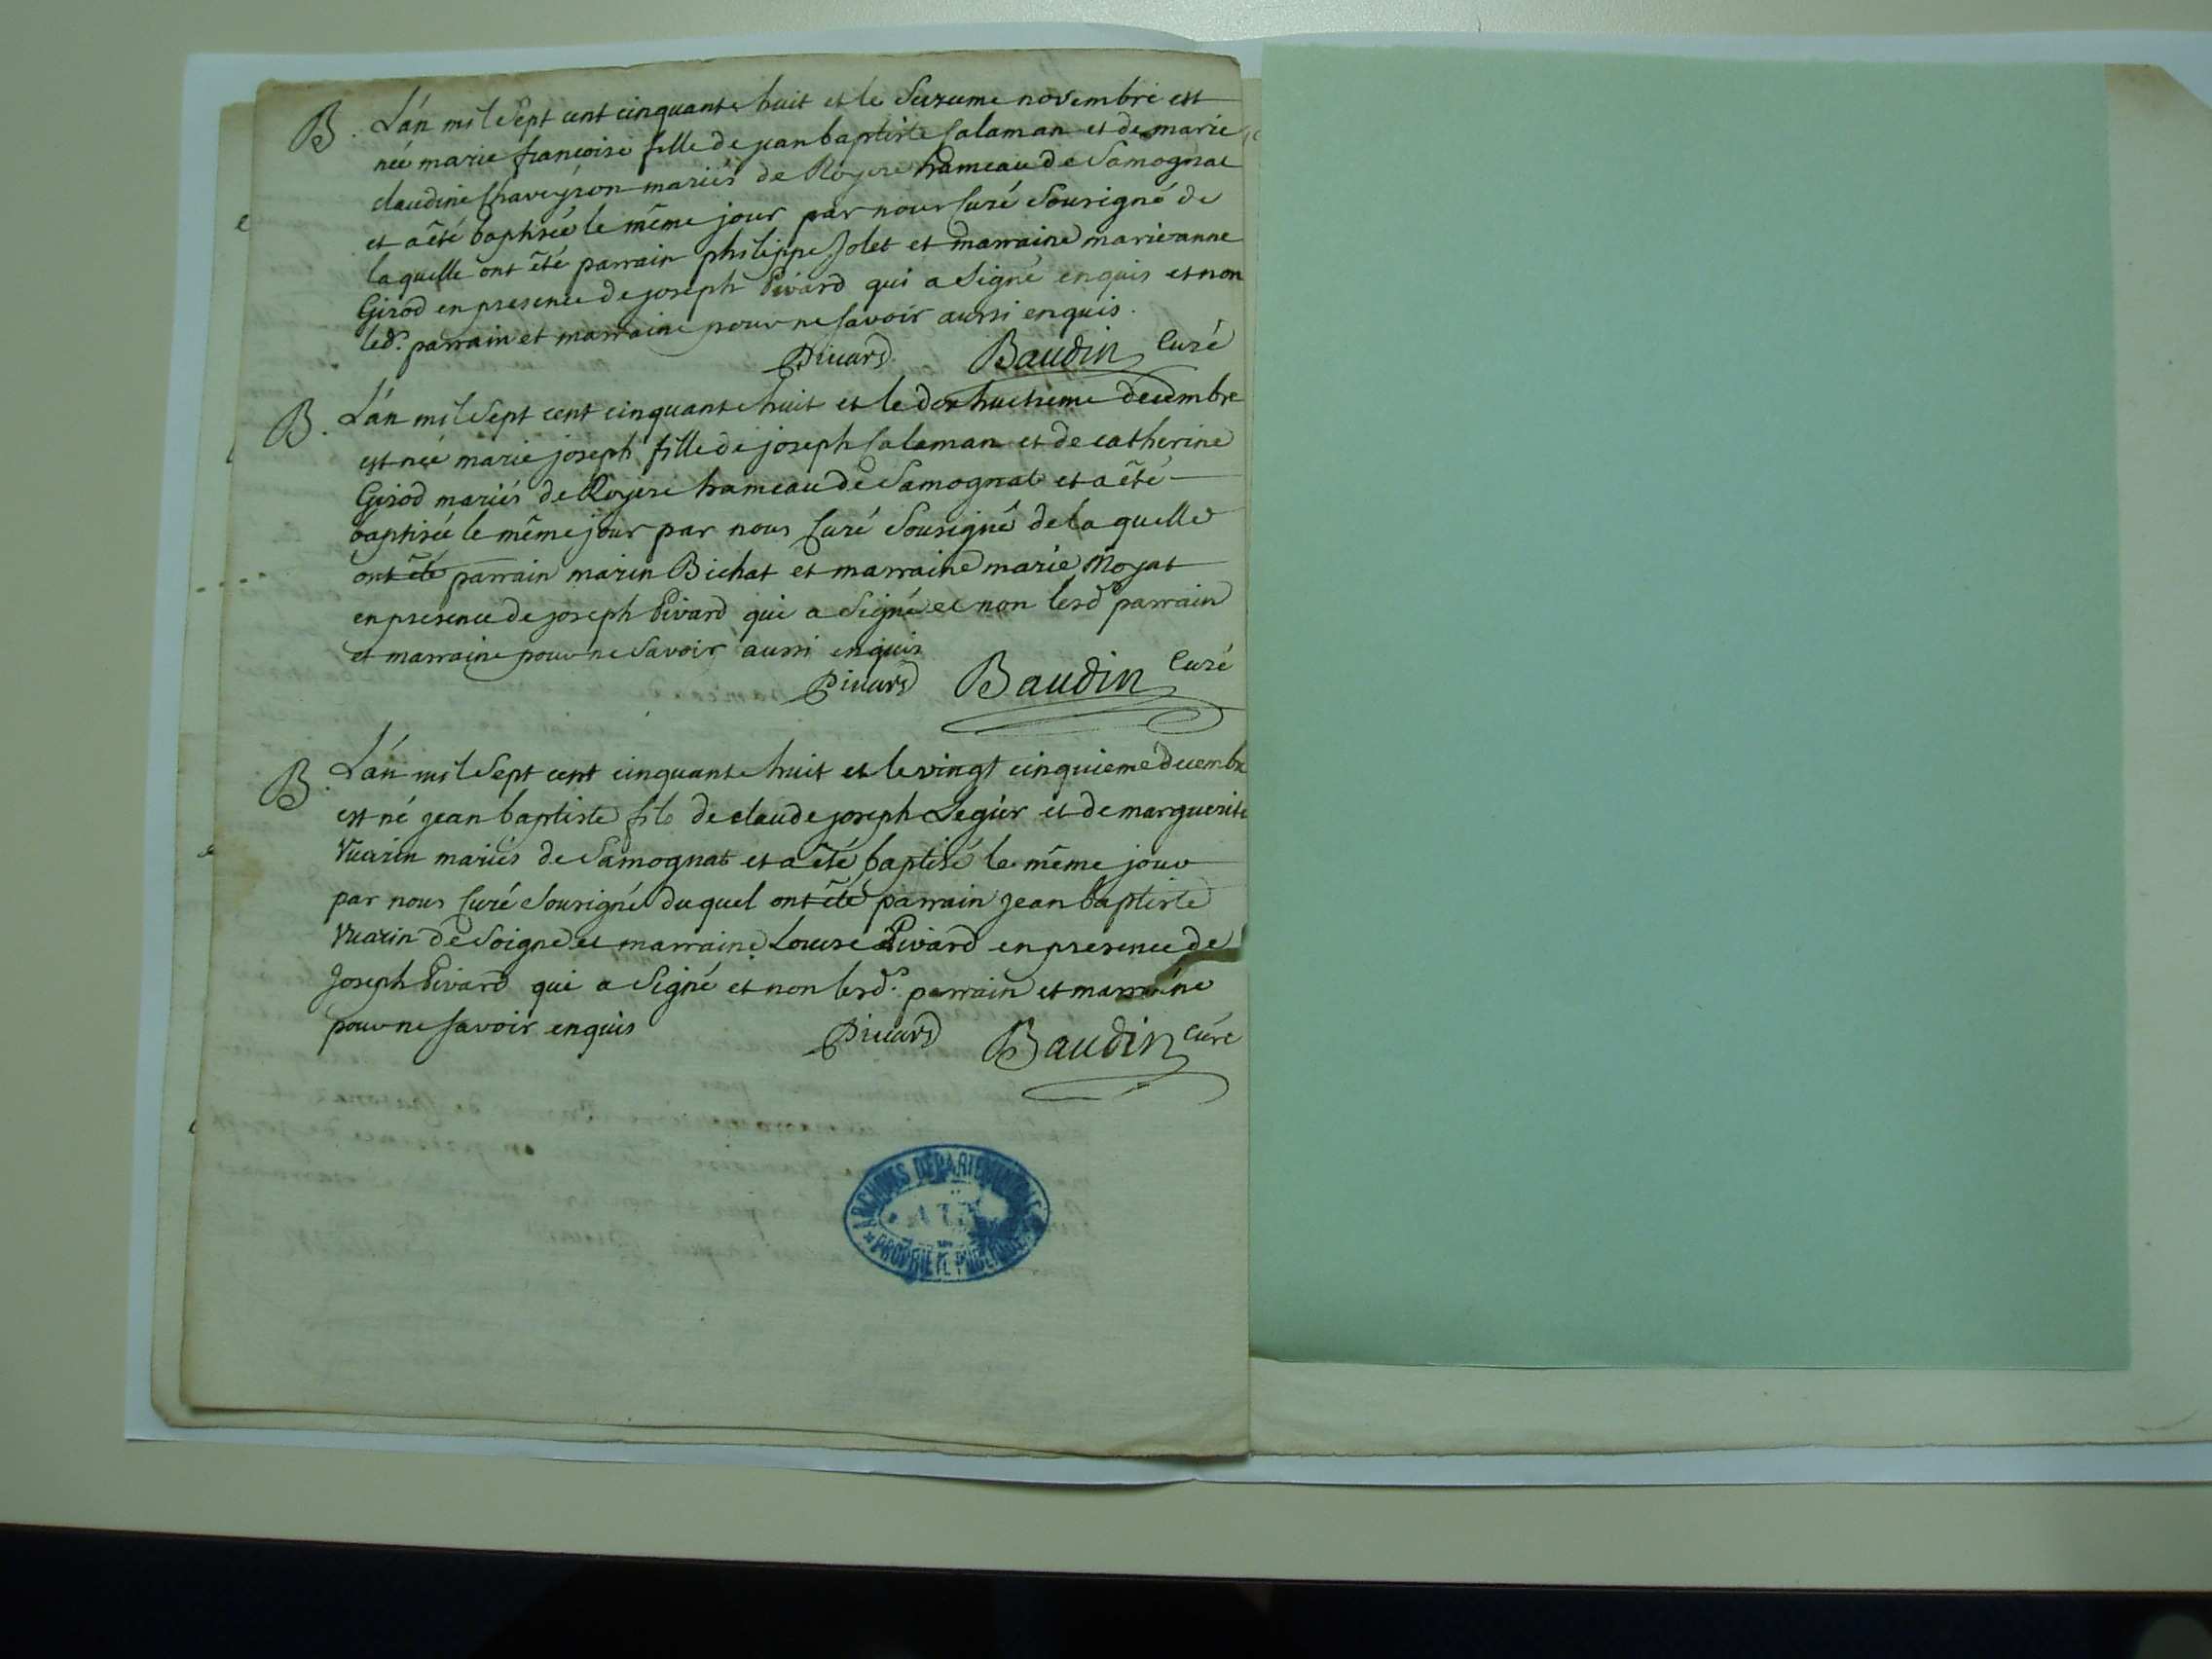 B. L'an mil sept cent cinquante huit et le seizieme novembre est
née marie francoise fille de jean baptiste Calaman et de marie
claudine Chaveyron mariés de Royere hameau de Samognat
et a été baptisée le même jour par nous Curé Sousigné de
laquelle ont été parrain philippe Jolet et marraine marie anne
Girod en presence de joseph Pivard qui a signé enquis et non
led. parrain et marraine pour ne savoir aussi enquis.
Pivard Baudin Curé
B. L'an mil sept cent cinquante huit et le dix huitieme decembre
est née marie joseph fille de joseph Calaman et de catherine
Girod mariés de Royere hameau de Samognat et a été
baptisée le même jour par nous Curé Sousigné de laquelle
ont été parrain marin Bichat et marraine marie Moyat
en presence de joseph Pivard qui a signé et non lesd parrain
et marraine pour ne savoir aussi enquis
Pivard Baudin Curé
B. L'an mil sept cent cinquante huit et le vingt cinquieme decembre
est né jean baptiste fils de claude joseph Legier et de marguerite
Vuarin mariés de Samognat et a été baptisé le même jour
par nous Curé Sousigné duquel ont été parrain jean baptiste
Vuarin de Soigne et marraine Louise Pivard en presence de
Joseph Pivard qui a signé et non lesd. parrain et marraine
pour ne savoir enquis
Pivard Baudin Curé
ARCHIVES DÉPARTEMENTALES
PROPRIÉTÉ PUBLIQUE